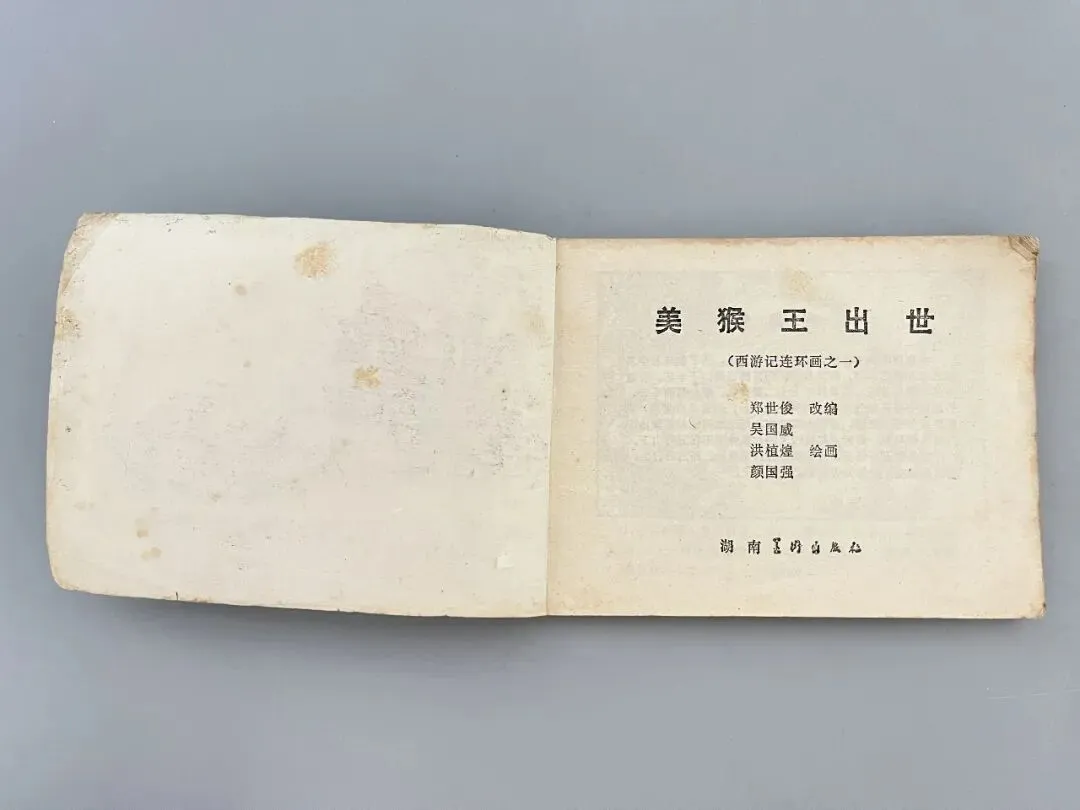 美猴王出世
（西游记连环画之一）
郑世俊 改编
吴国威
洪植煌 绘画
颜国强
湖南美术出版社